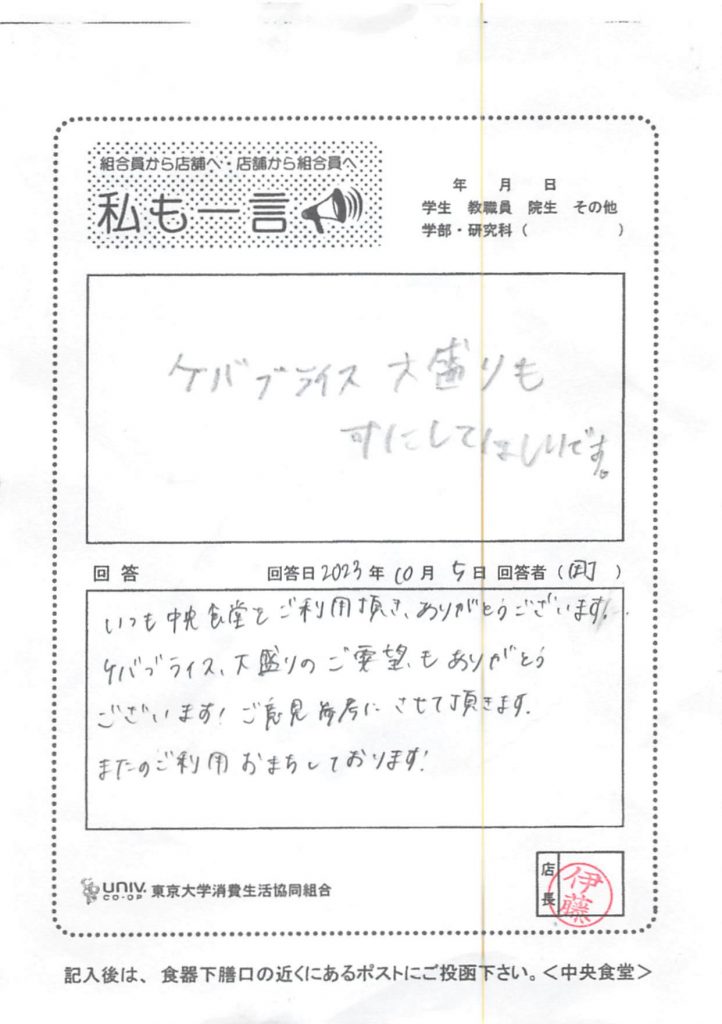 組合員から店舗へ・店舗から組合員へ
私も一言
年 月 日
学生 教職員 院生 その他
学部・研究科（ ）
ケバブライス 大盛りも
してほしいです。
回答 回答日2023年10月5日 回答者（ ）
いつも中央食堂をご利用頂き、ありがとうございます。
ケバブライス、大盛りのご要望もありがとう
ございます！ご意見参考にさせて頂きます。
またのご利用おまちしております！
店長
伊藤
UNIV.
CO-OP
東京大学消費生活協同組合
記入後は、食器下膳口の近くにあるポストにご投函下さい。＜中央食堂＞